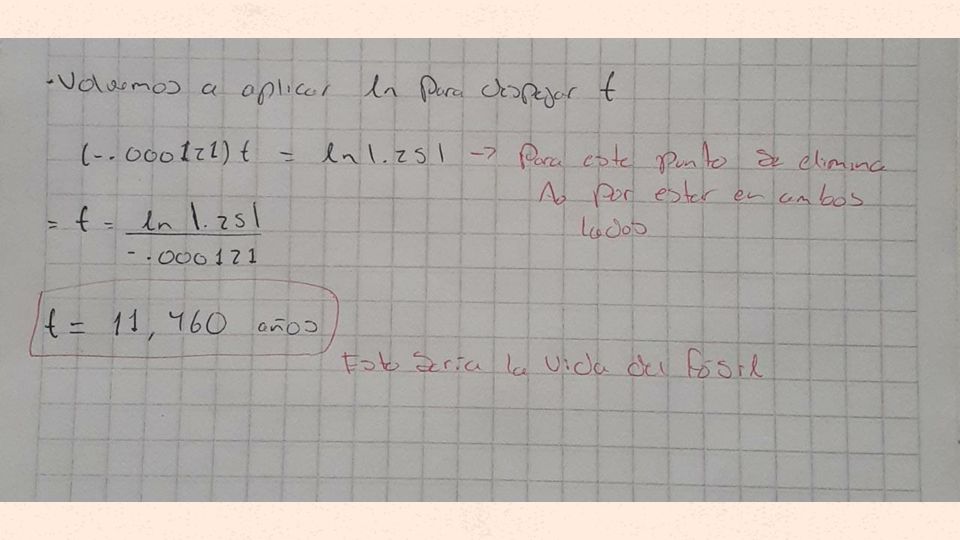 ·Volvemos a aplicar ln para despejar t
(-.000121) t = ln |.251 → Para este punto se elimina
A₀ por estar en ambos
lados
= t = ln |.251
-.000121
t = 11,460 años
Esto sería la vida del fósil